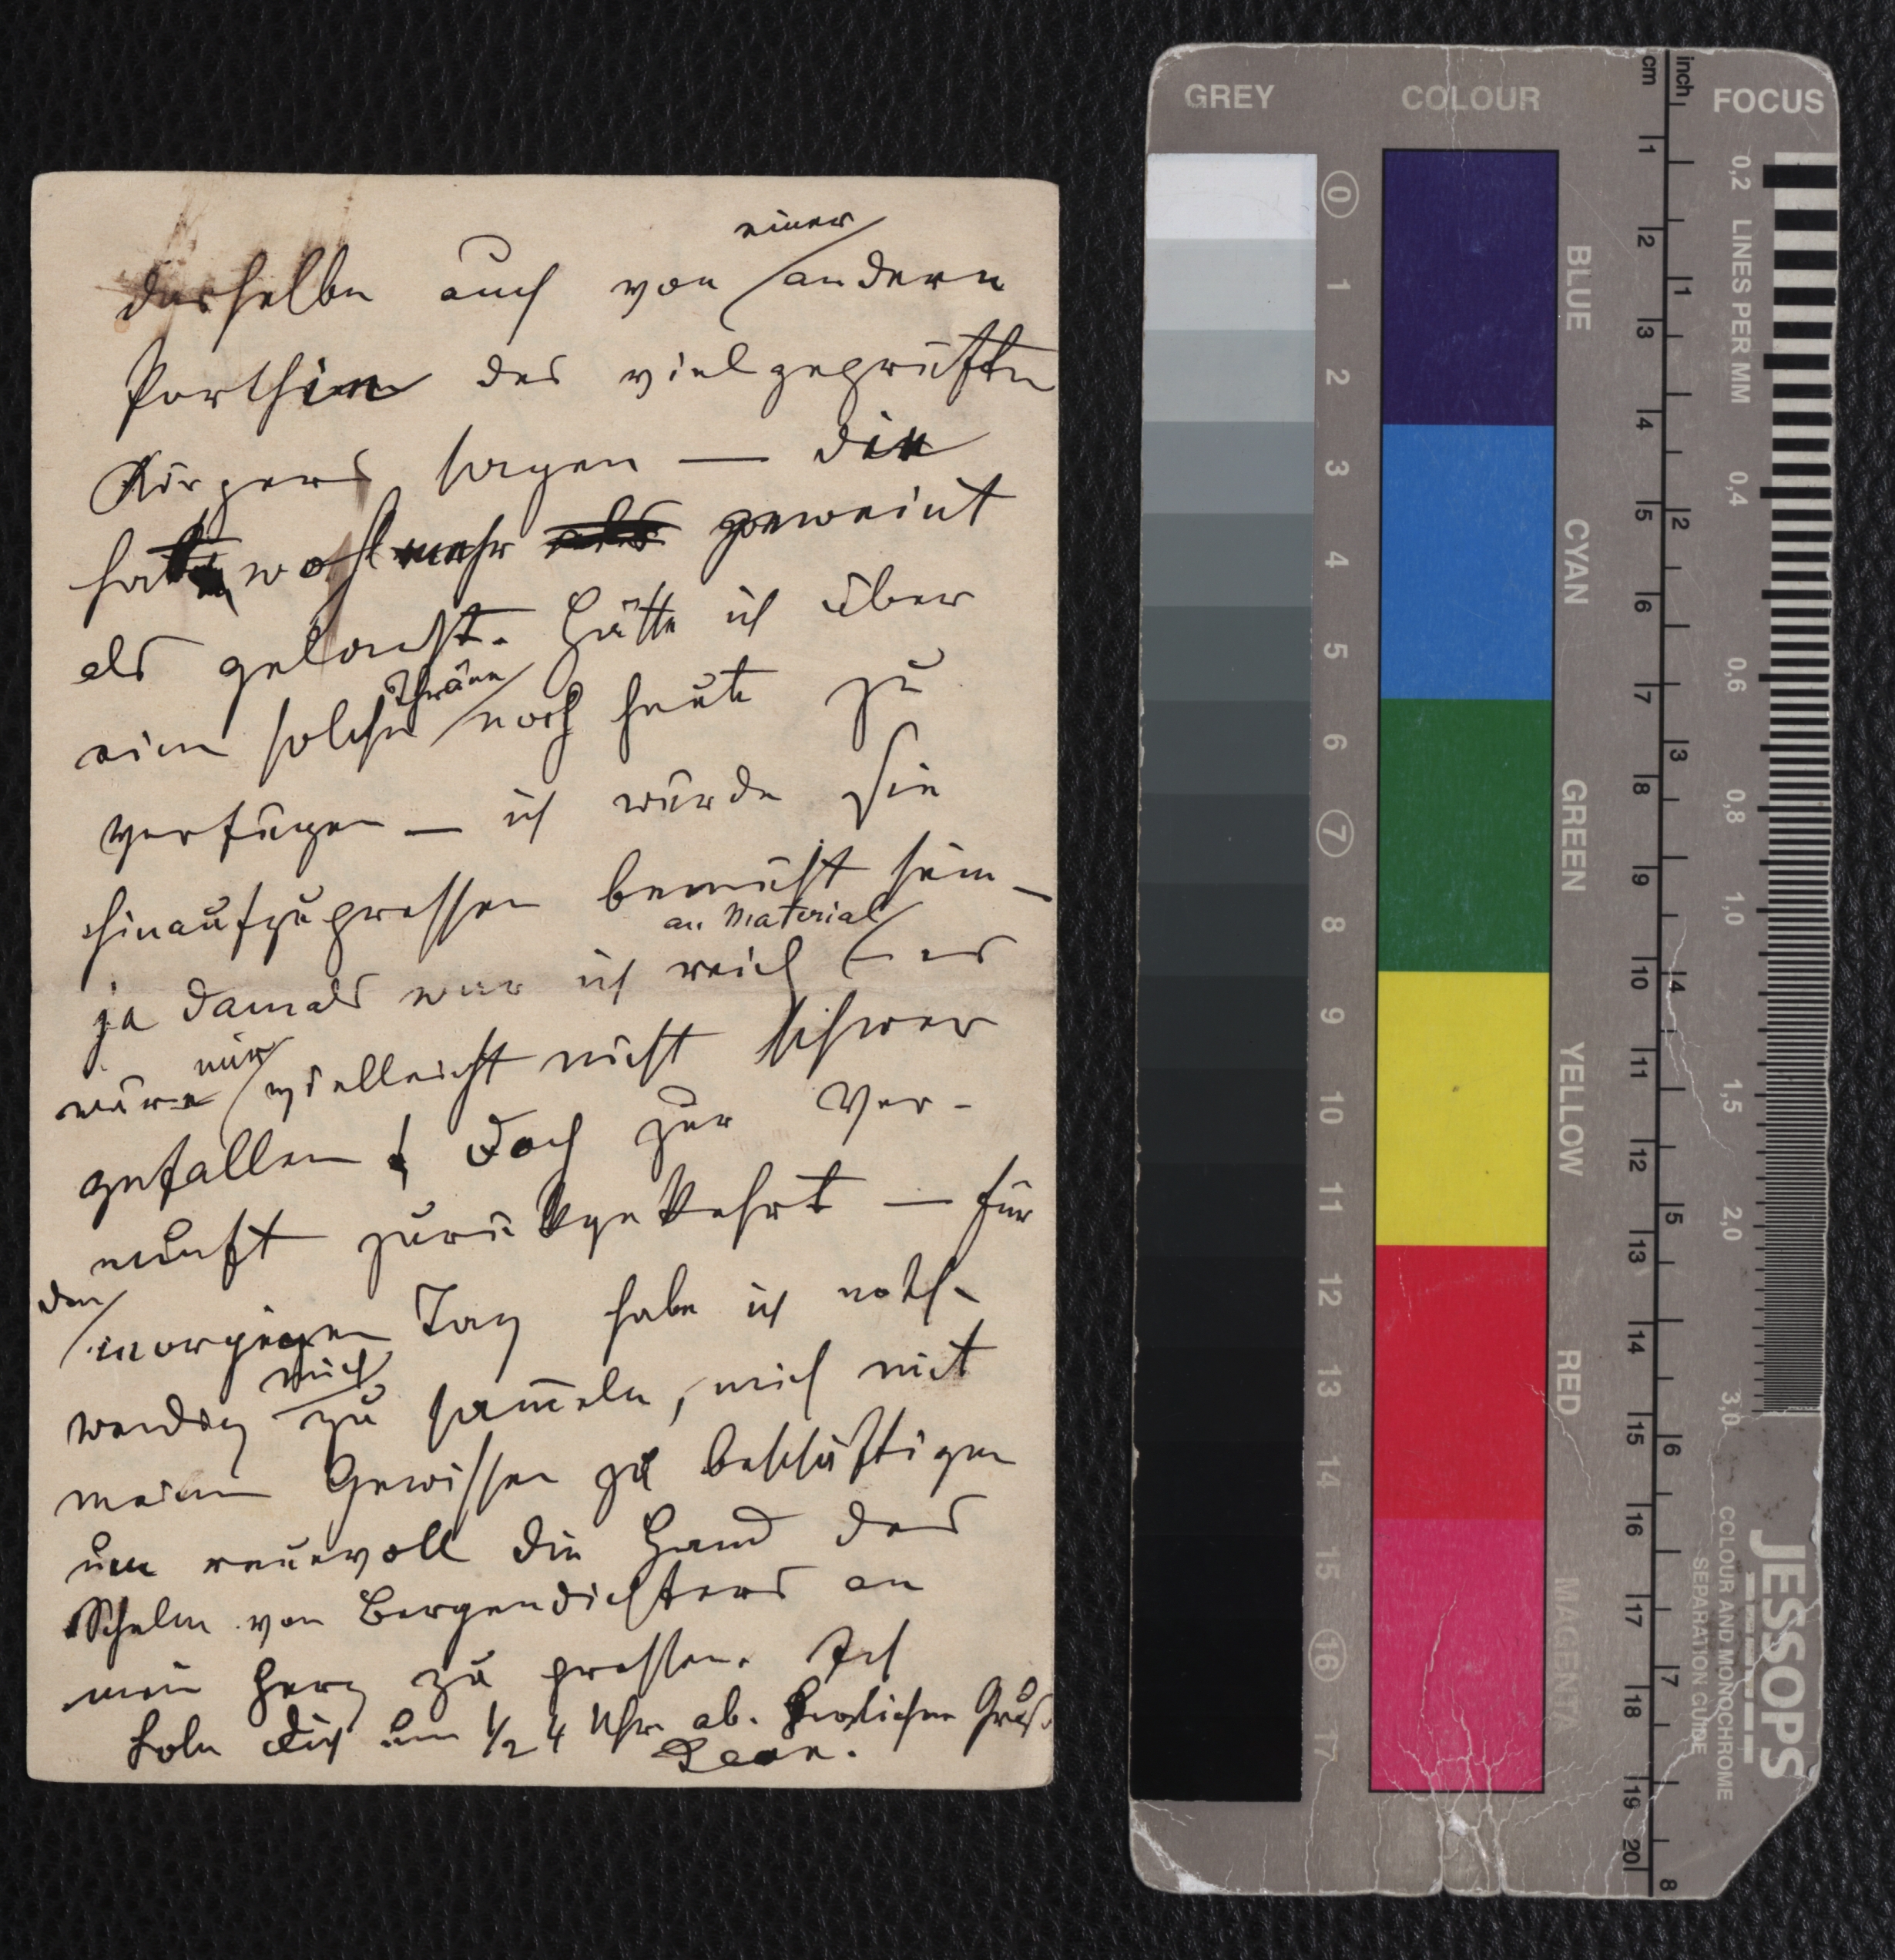 dasselbe auch von einer andern
Parthie des vielgeprüften
Körpers sagen — die
hat wohl mehr geweint
als gelacht. Hätte ich über
eine solche Thräne noch heute zu
verfügen — ich würde sie
hinaufzupressen bemüht sein —
ja damals war ich reich an Material — es
wäre mir vielleicht nicht schwer
gefallen! Doch zur Ver-
nunft zurückgekehrt — für
den morgigen Tag habe ich noth-
wendig mich zu sam̅eln, mich mit
meinem Gewissen zu beschäftigen
um reuevoll die Hand des
Schelm von Bergendichters an
mein Herz zu pressen. Ich
hole Dich um ½ 4 Uhr ab. Herzlichen Gruß.
GREY
COLOUR
FOCUS
cm
inch
0 1 2 3 4 5 6 7 8 9 10 11 12 13 14 15 16 17
BLUE
CYAN
GREEN
YELLOW
RED
MAGENTA
1 2 3 4 5 6 7 8 9 10 11 12 13 14 15 16 17 18 19 20
1 2 3 4 5 6 7 8
0,2 LINES PER MM 0,4 0,6 0,8 1,0 1,5 2,0 3,0
JESSOPS
COLOUR AND MONOCHROME
SEPARATION GUIDE